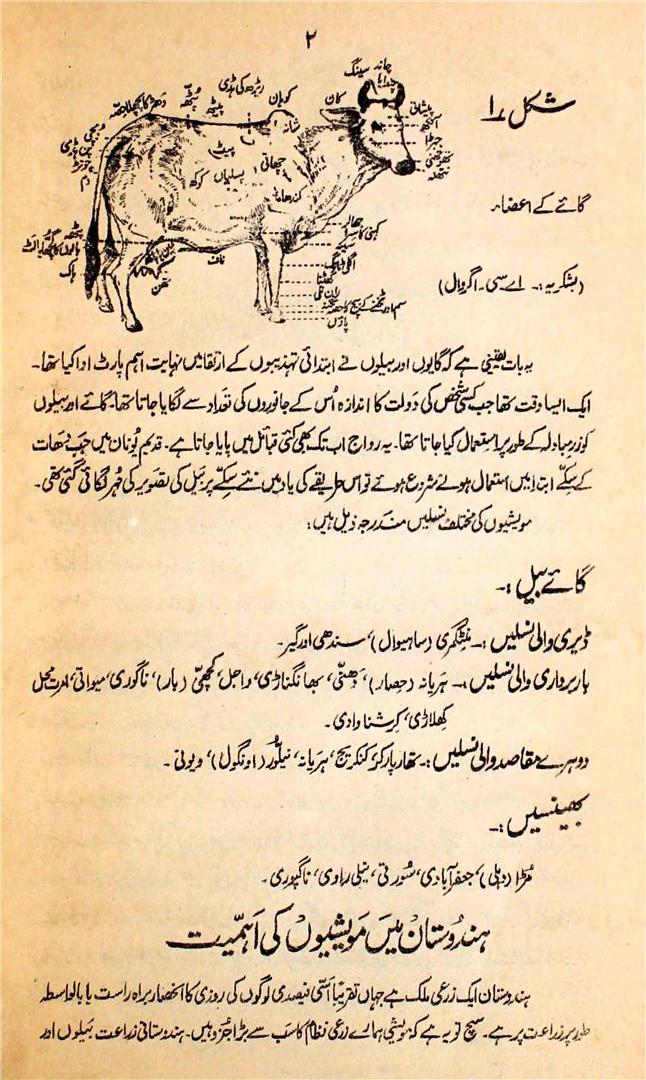 ۲
شکل ۱
چاند
سینگ
جدایا
پیشانی
آنکھ
جبڑا
نتھنے
کان
کوہان
شانہ
ریڑھ کی ہڈی
پیٹھ
پٹھہ
دھڑ کا پچھلا حصّہ
دم
پیٹ
پسلیاں
کوکھ
چھاتی
کندھا
گائے کے اعضاء
جھالر
کہنی کا سر
سینہ
اگلی ٹانگ
گھٹنا
سم اور ٹخنے کے بیچ کا حصّہ
پاؤں
ناف
تھن
پٹھہ
ہاک
(بشکریہ :۔ اے سی۔ اگروال)
یہ بات یقینی ہے کہ گایوں اور بیلوں نے ابتدائی تہذیبوں کے ارتقا میں نہایت اہم پارٹ ادا کیا تھا۔
ایک ایسا وقت تھا جب کسی شخص کی دَولت کا اندازہ اُس کے جانوروں کی تعداد سے لگایا جاتا تھا۔ گائے اور بیلوں
کو زرِ مبادلہ کے طور پر استعمال کیا جاتا تھا۔ یہ رواج اب تک بھی کئی قبائل میں پایا جاتا ہے۔ قدیم یُونان میں جب دھات
کے سکّے ابتدا میں استعمال ہونے شروع ہوئے تو اس طریقے کی یاد میں نئے سکّے پر بَیل کی تصویر کی مُہر لگائی گئی تھی۔
مویشیوں کی مختلف نسلیں مندرجہ ذیل ہیں:
گائے بیل :۔
ڈیری والی نسلیں :۔ منٹگمری (ساہیوال)، سندھی اور گیر۔
باربرداری والی نسلیں :۔ ہریانہ (حصار)، دھنّی، بھانگناڑی، واجل، کچھّی (بار)، ناگوری، میواتی، امرت محل
کھلاڑی، کرشنا وادی۔
دوہرے مقاصد والی نسلیں :۔ تھارپارکر، کنکریج، ہریانہ، نیلور (اونگول)، دیونی۔
بھینسیں :۔
مُرّا (دہلی)، جعفرآبادی، سُورتی، نیلی راوی، ناگپوری۔
ہندُوستان میں مَویشیوں کی اَہمّیت
ہندوستان ایک زرعی ملک ہے جہاں تقریباً اَسّی فیصدی لوگوں کی روزی کا انحصار براہ راست یا بالواسطہ
طور پر زراعت پر ہے۔ سچ تو یہ ہے کہ مویشی ہمارے زرعی نظام کا سَب سے بڑا جُزو ہیں۔ ہندوستانی زراعت بَیلوں اور